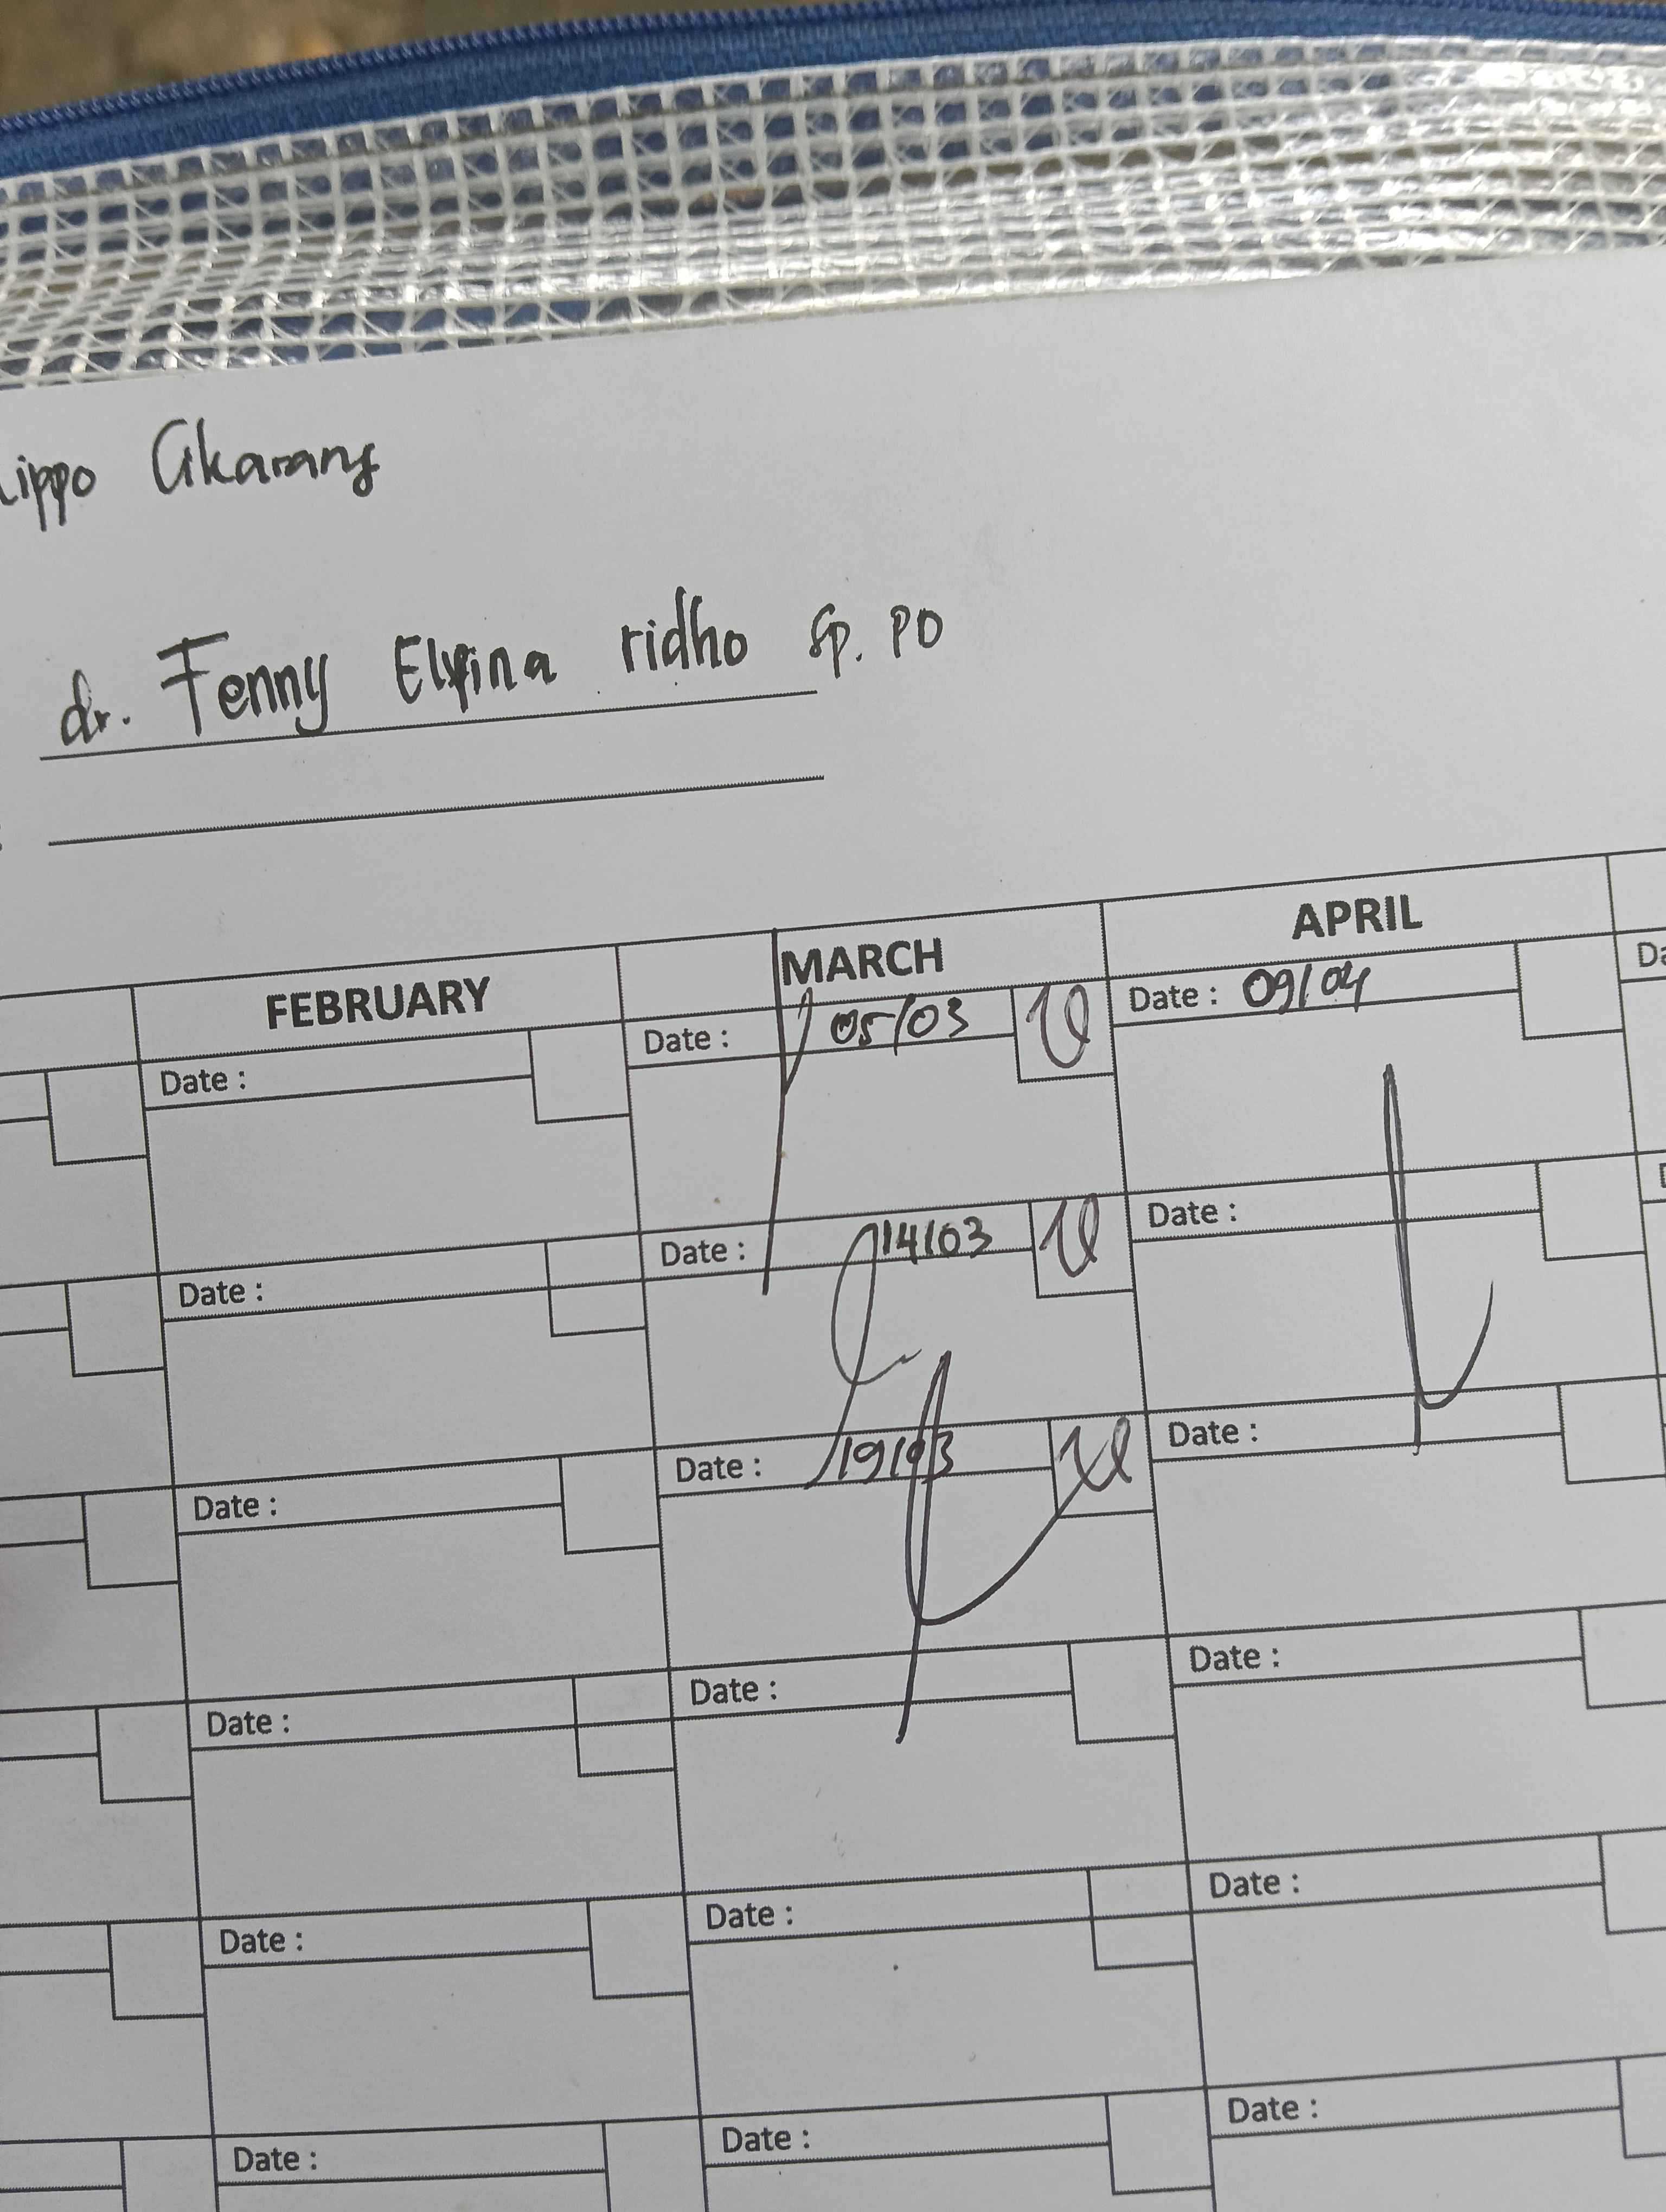 Lippo Cikarang
dr. Fenny Elvina ridho Sp. PD
FEBRUARY MARCH APRIL
Date : Date : 05/03 Date : 09/04
Date : Date : 14/03 Date :
Date : Date : 19/03 Date :
Date : Date : Date :
Date : Date : Date :
Date : Date : Date :